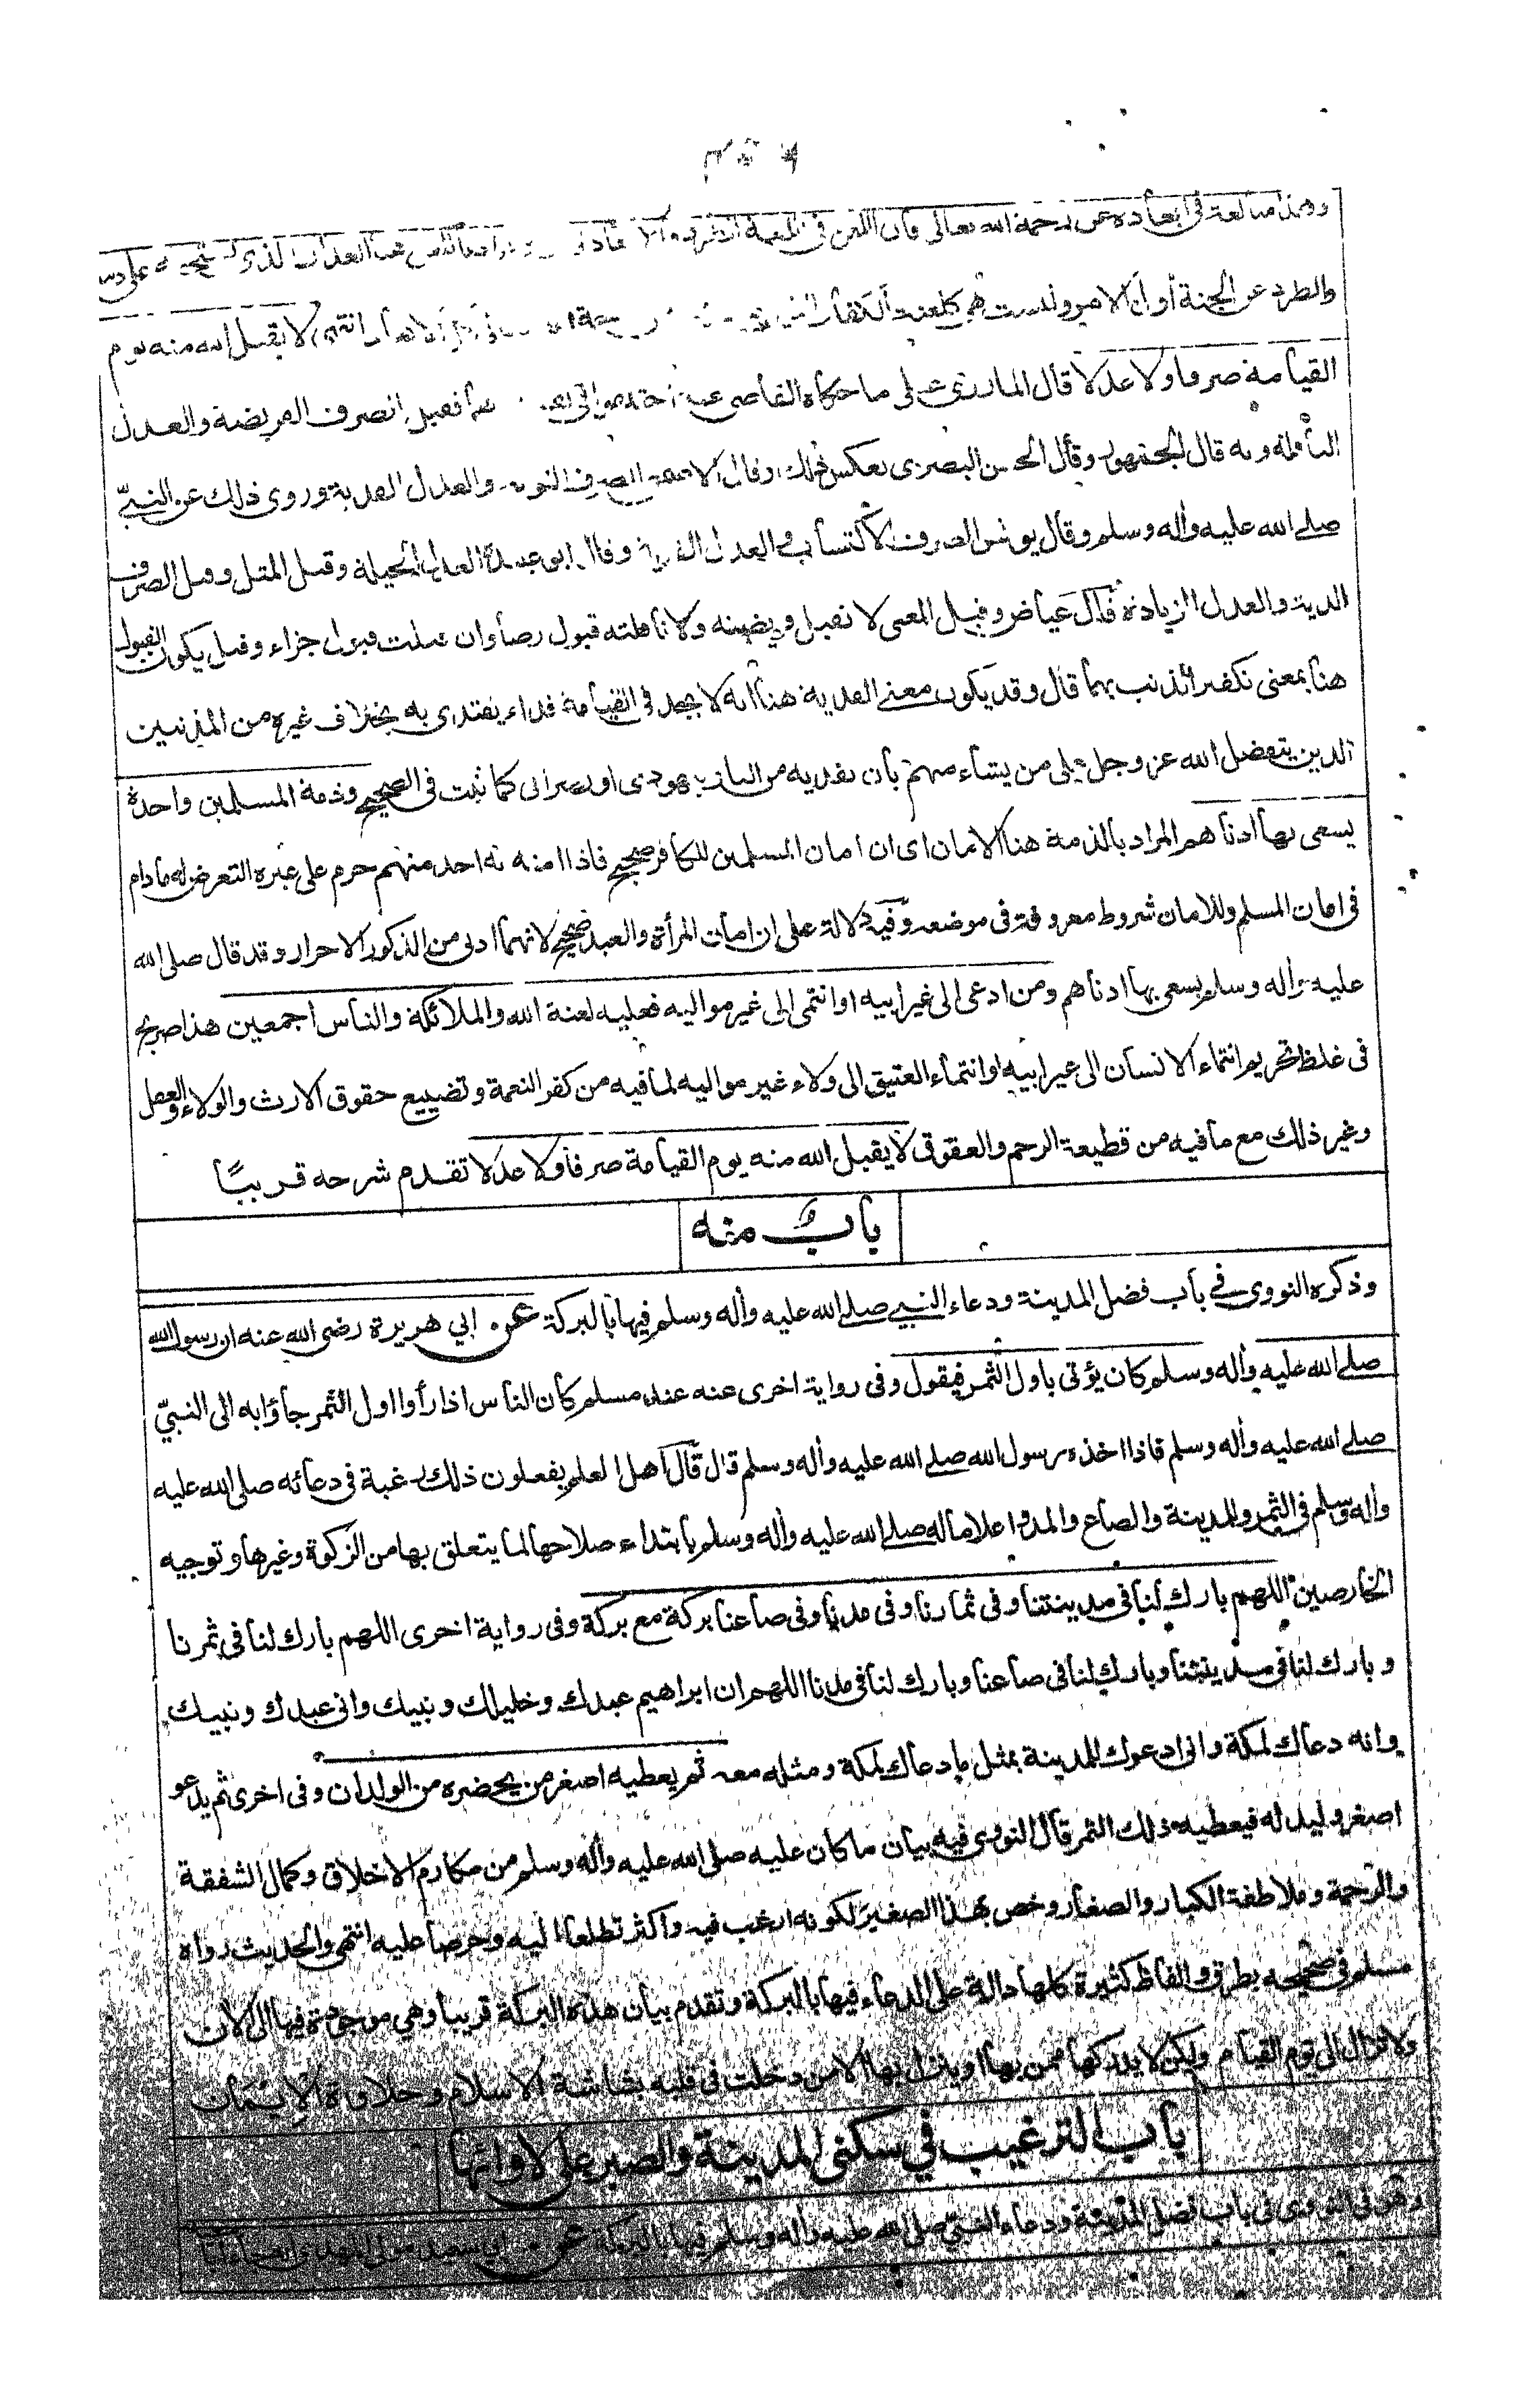 وهذا مبالغة في ابعاده عن رحمة الله تعالى فان اللعن في اللغة الطرد هذا العذاب الذي يستحقه على
والطرد عن الجنة أول الامر وليست هي كلعنة الكفار لا يقبل الله منه يوم
القيامة صرفا ولا عدلا قال المازري على ما حكاه القاضي عنه الصرف الفريضة والعدل
النافلة وبه قال الجمهور وقال الحسن البصري بعكس ذلك وقال الاصمعي الصرف التوبة والعدل الفدية وروى ذلك عن النبيّ
صلے الله عليه وأله وسلم وقال يونس الصرف الاكتساب والعدل الفدية وقال ابو عبيدة العدل الحيلة وقيل المثل وقيل الصرف
الدية والعدل الزيادة قال عياض وقيل المعنى لا تقبل فريضته ولا نافلته قبول رضا وان قبلت قبول جزاء وقيل يكون القبول
هنا بمعنى تكفير الذنب بهما قال وقد يكون معنے الفدية هنا انه لا يجد في القيامة فداء يفتدى به بخلاف غيره من المذنبين
الذين يتفضل الله عز وجل على من يشاء منهم بأن يفديه من النار بيهودى او نصرانى كما ثبت فى الصحيح وذمة المسلمين واحدة
يسعى بها ادناهم المراد بالذمة هنا الامان اى ان امان المسلمين للكافر صحيح فاذا امنه به احد منهم حرم على غيره التعرض له ما دام
فى امان المسلم وللامان شروط معروفة فى موضعه وفيه دلالة على ان امان المرأة والعبد صحيح لانهما ادنى من الذكور الاحرار وقد قال صلى الله
عليه وأله وسلم يسعى بها ادناهم ومن ادعى الى غير ابيه او انتمى الى غير مواليه فعليه لعنة الله والملائكة والناس اجمعين هذا صريح
فى غلظ تحريم انتماء الانسان الى غير ابيه او انتماء العتيق الى ولاء غير مواليه لما فيه من كفر النعمة وتضييع حقوق الارث والولاء والعقل
وغير ذلك مع ما فيه من قطيعة الرحم والعقوق لا يقبل الله منه يوم القيامة صرفا ولا عدلا تقدم شرحه قريبًا
بابٌ منه
وذكره النووى فے باب فضل المدينة ودعاء النبے صلے الله عليه وأله وسلم فيها بالبركة عن ابي هريرة رضى الله عنه ان رسول الله
صلے الله عليه وأله وسلم كان يؤتى باول الثمر فيقول وفى رواية اخرى عنه عند مسلم كان الناس اذا رأوا اول الثمر جاؤا به الى النبيّ
صلے الله عليه وأله وسلم فاذا اخذه رسول الله صلے الله عليه وأله وسلم قال قال اهل العلم يفعلون ذلك رغبة فى دعائه صلى الله عليه
وأله وسلم فى الثمر وللمدينة والصاع والمد واعلاما له صلے الله عليه وأله وسلم بابتداء صلاحها لما يتعلق بها من الزكوة وغيرها وتوجيه
الخارصين اللهم بارك لنا فى مدينتنا وفى ثمارنا وفى مدنا وفى صاعنا بركة مع بركة وفى رواية اخرى اللهم بارك لنا فى ثمرنا
وبارك لنا فى مدينتنا وبارك لنا فى صاعنا وبارك لنا فى مدنا اللهم ان ابراهيم عبدك وخليلك ونبيك وانى عبدك ونبيك
وانه دعاك لمكة وانى ادعوك للمدينة بمثل ما دعاك لمكة ومثله معه ثم يعطيه اصغر من يحضره من الولدان وفى اخرى ثم يدعو
اصغر وليد له فيعطيه ذلك الثمر قال النووى فيه بيان ما كان عليه صلى الله عليه وأله وسلم من مكارم الاخلاق وكمال الشفقة
والرحمة وملاطفة الكبار والصغار وخص بهذا الصغير لكونه ارغب فيه واكثر تطلعا اليه وحرصا عليه انتهى والحديث رواه
مسلم فى صحيحه بطرق والفاظ كثيرة كلها دالة على الدعاء فيها بالبركة وتقدم بيان هذه البركة قريبا وهى موجودة فيها الى الان
ولا تزال الى يوم القيام ولكن لا يدركها ممن بها او ينزل بها الا من دخلت فى قلبه بشاشة الاسلام وحلاوة الايمان
باب الترغيب في سكنى المدينة والصبر على لاوائها
وهو فى النووى فى باب فضل المدينة ودعاء النبيّ صلى الله عليه وأله وسلم فيها بالبركة عن ابي سعيد مولى المهرى